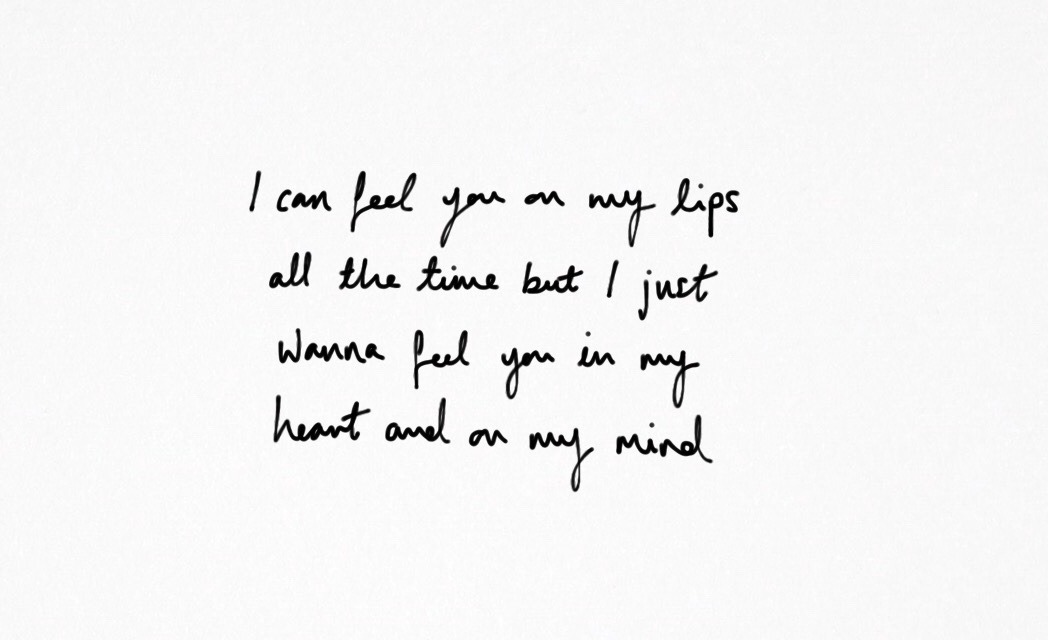 I can feel you on my lips
all the time but I just
wanna feel you in my
heart and on my mind